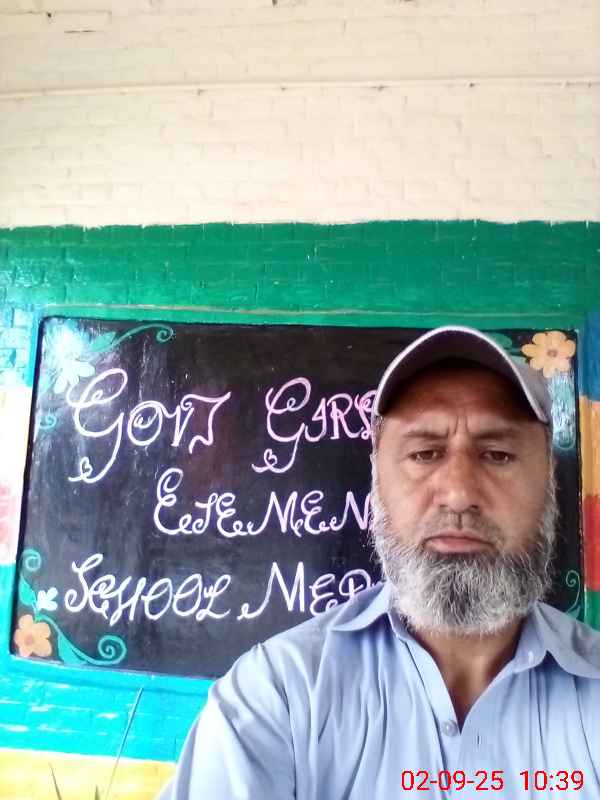 GOVT GIRL
ELEMEN
SCHOOL MED
02-09-25 10:39